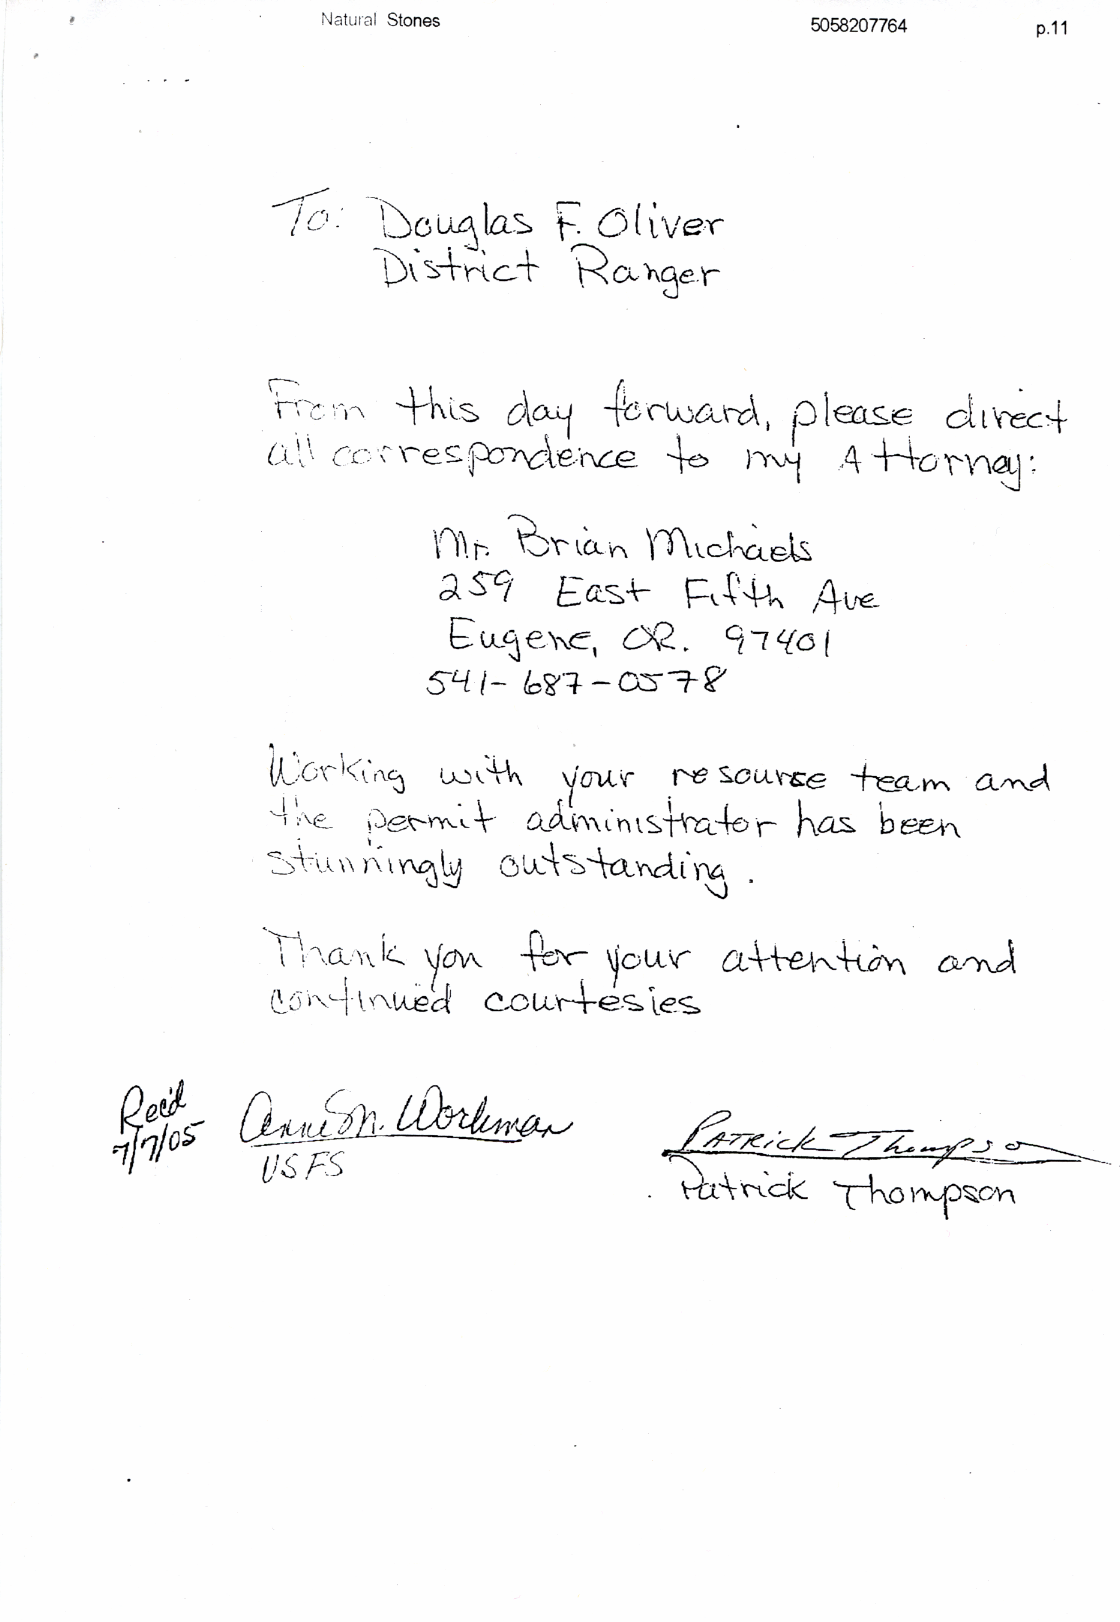 Natural Stones 5058207764 p.11
To: Douglas F. Oliver
District Ranger
From this day forward, please direct
all correspondence to my Attorney:
Mr. Brian Michaels
259 East Fifth Ave
Eugene, OR. 97401
541-687-0578
Working with your resourse team and
the permit administrator has been
stunningly outstanding.
Thank you for your attention and
continued courtesies
Rec'd
7/7/05
M. Workman
USFS
Patrick Thompson
Patrick Thompson